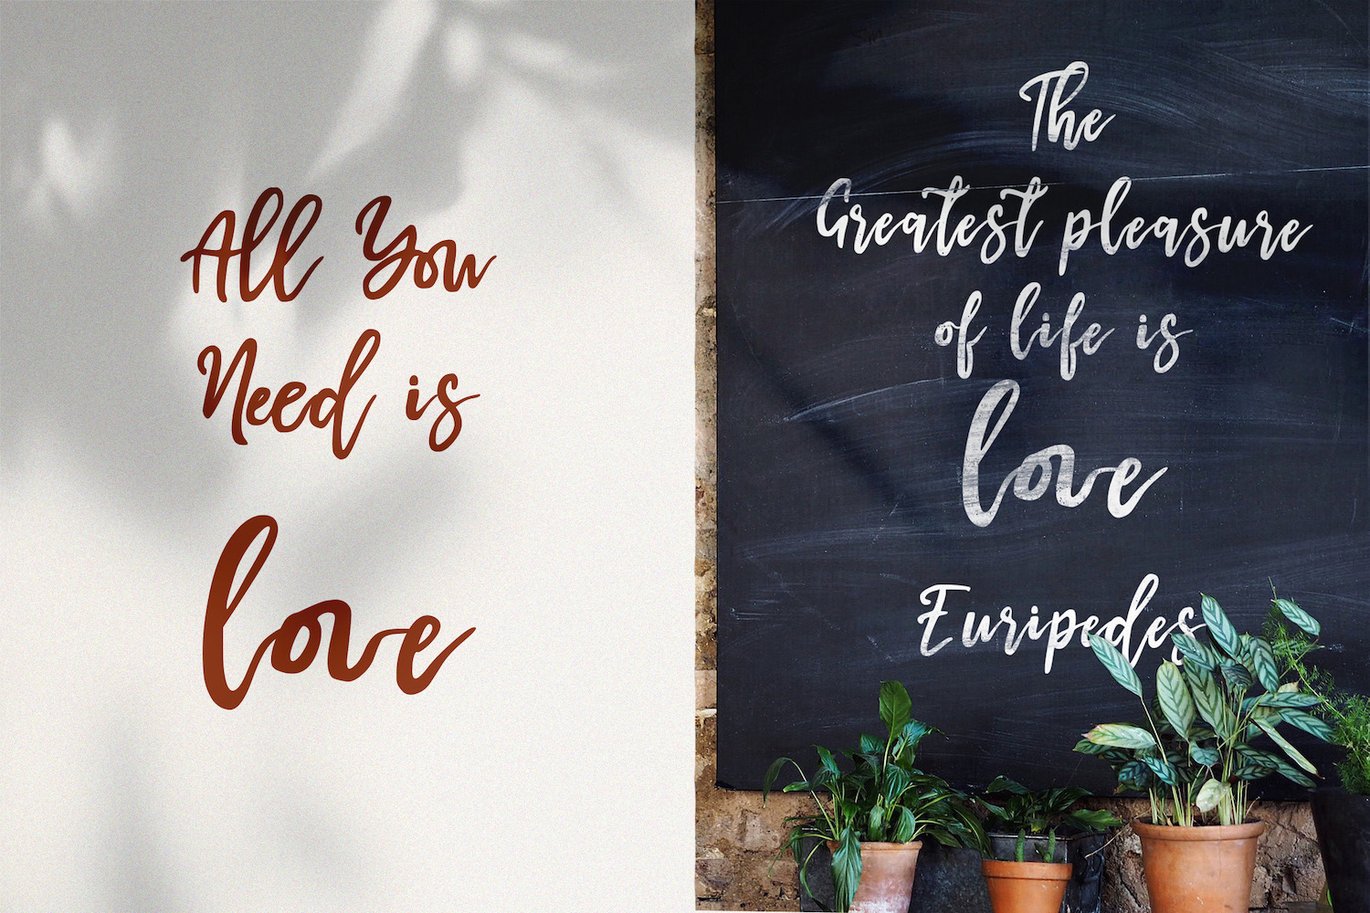 All You
Need is
love
The
Greatest pleasure
of life is
love
Euripedes